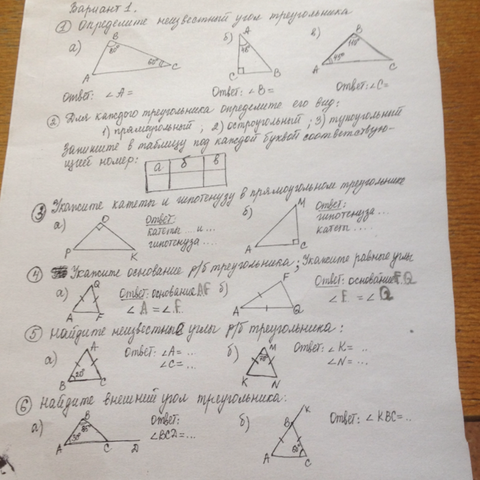 Вариант 1.
① Определите неизвестный угол треугольника
а) б) в)
A B C
A C B
A B C
Ответ: ∠A= Ответ: ∠B= Ответ: ∠C=
② Для каждого треугольника определите его вид:
1) прямоугольный, 2) остроугольный; 3) тупоугольный
Запишите в таблицу под каждой буквой соответствую-
щий номер:
а б в
③ Укажите катеты и гипотенузу в прямоугольном треугольнике
а) P O K Ответ: катеты ... и ... гипотенуза ...
б) A M C Ответ: гипотенуза ... катеты ...
④ Укажите основание р/б треугольника; Укажите равные углы
а) A Q F Ответ: основание AF
∠A = ∠F.
б) A F Q Ответ: основание FQ
∠F = ∠Q
⑤ Найдите неизвестные углы р/б треугольника:
а) A B C Ответ: ∠A=...
∠C=...
б) M K N Ответ: ∠K=..
∠N=...
⑥ Найдите внешний угол треугольника:
а) A B C D Ответ:
∠BCD=...
б) A B C K Ответ: ∠KBC=..